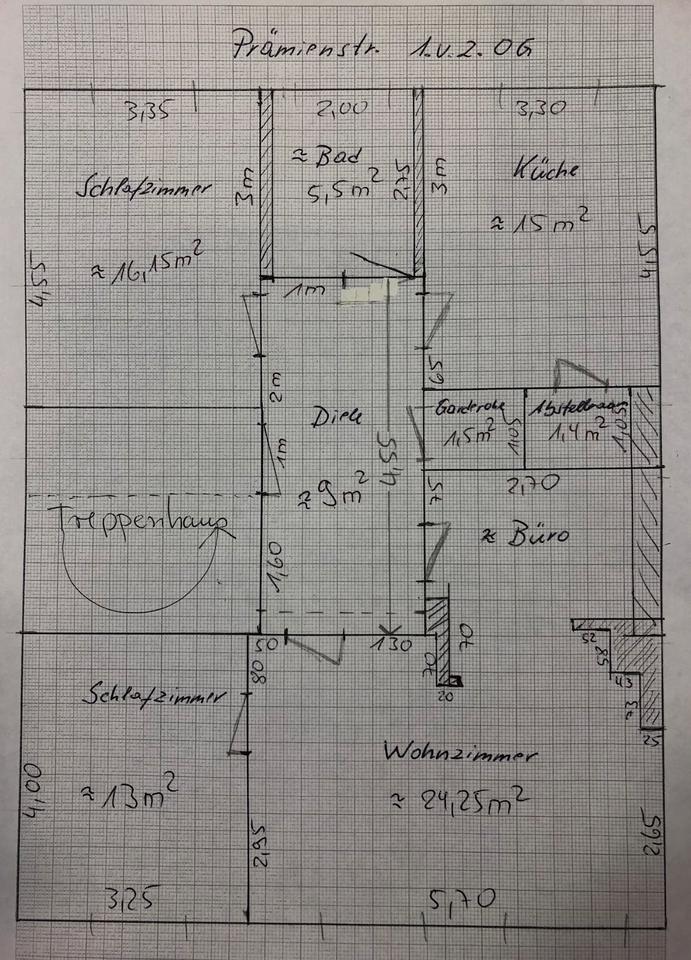 Prämienstr. 1. u. 2. OG
3,35
2,00
3,30
Schlafzimmer
≈ 16,15 m²
4,55
3 m
≈ Bad
5,5 m²
2,75
3 m
Küche
≈ 15 m²
4,55
1 m
2 m
65
Diele
≈ 9 m²
4,55
1 m
Garderobe
1,5 m²
1,05
Abstellraum
1,4 m²
1,05
75
2,70
≈ Büro
Treppenhaus
1,60
50
130
70
70
20
52
85
43
73
25
80
Schlafzimmer
≈ 13 m²
4,00
2,95
3,25
Wohnzimmer
≈ 24,25 m²
2,65
5,70